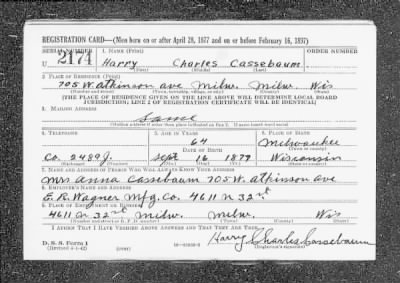 REGISTRATION CARD—(Men born on or after April 28, 1877 and on or before February 16, 1897)
SERIAL NUMBER 1. NAME (Print) ORDER NUMBER
U 2174 Harry Charles Cassebaum
(First) (Middle) (Last)
2. PLACE OF RESIDENCE (Print)
705 W. Atkinson ave Milw. Milw. Wis
(Number and street) (Town, township, village, or city) (County) (State)
[THE PLACE OF RESIDENCE GIVEN ON THE LINE ABOVE WILL DETERMINE LOCAL BOARD
JURISDICTION; LINE 2 OF REGISTRATION CERTIFICATE WILL BE IDENTICAL]
3. MAILING ADDRESS
Same
[Mailing address if other than place indicated on line 2. If same insert word same]
4. TELEPHONE 5. AGE IN YEARS 6. PLACE OF BIRTH
64 Milwaukee
DATE OF BIRTH (Town or county)
Co. 2489J. Sept 16 1877 Wisconsin
7. NAME AND ADDRESS OF PERSON WHO WILL ALWAYS KNOW YOUR ADDRESS
Mrs Anna Cassebaum 705 W. Atkinson ave
8. EMPLOYER'S NAME AND ADDRESS
E. R. Wagner Mfg. Co. 4611 N 32nd
9. PLACE OF EMPLOYMENT OR BUSINESS
4611 N 32nd Milw. Milw. Wis
(Number and street or R. F. D. number) (Town) (County) (State)
I AFFIRM THAT I HAVE VERIFIED ABOVE ANSWERS AND THAT THEY ARE TRUE.
D. S. S. Form 1
(Revised 4-1-42) Harry Charles Cassebaum
(Registrant's signature)